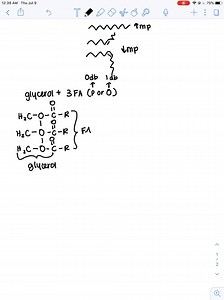 12:39 AM Thu Jul 9
76%
↑mp
↓mp
0db 1db
↑ ↑
glycerol + 3FA (P or O)
O
H₂C-O-C-R
O
H₂C-O-C-R
O
H₂C-O-C-R
FA
glycerol
1
2